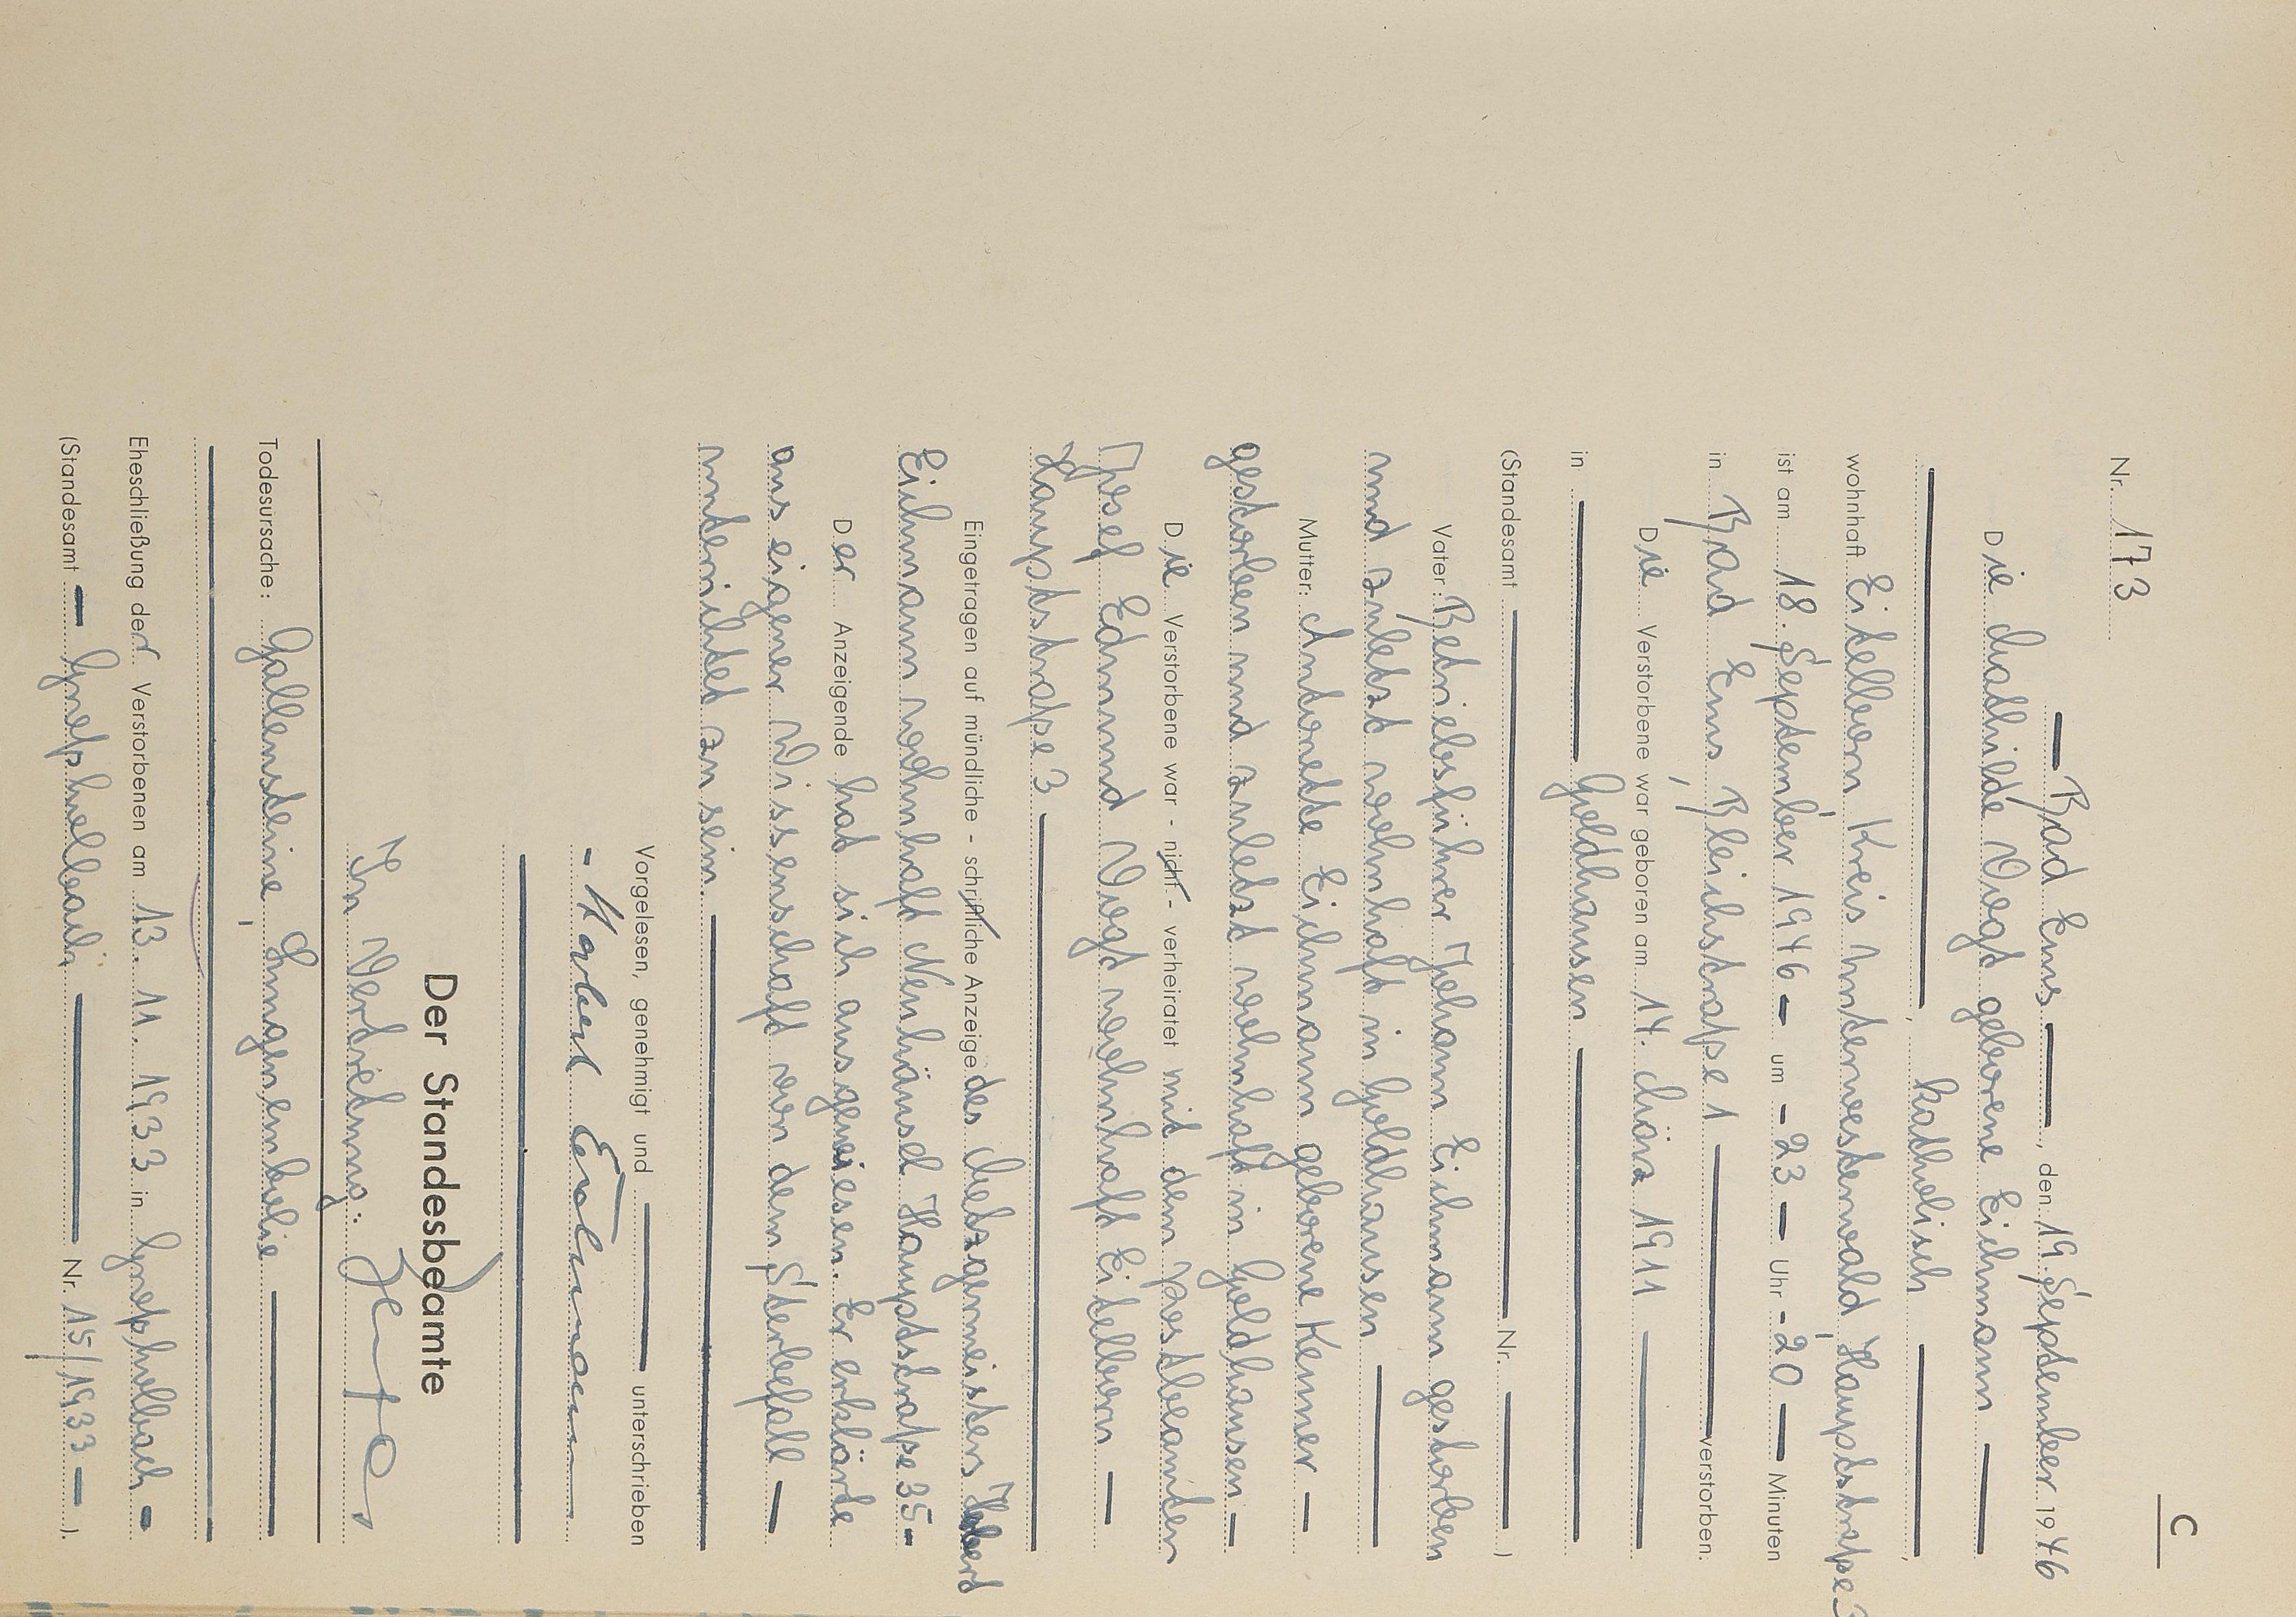 C
Nr. 173
— Bad Ems —, den 19. September 1946
Die Mathilde Vogt geborene Eichmann —
—, katholisch —,
wohnhaft Eitelborn Kreis Unterwesterwald, Hauptstraße 3
ist am 18. September 1946 — um - 23 — Uhr - 20 — Minuten
in Bad Ems, Bleichstraße 1 — verstorben.
Die Verstorbene war geboren am 14. März 1911 —
in — Goldhausen —
(Standesamt — Nr. —)
Vater: Betriebsführer Johann Eichmann gestorben
und zuletzt wohnhaft in Goldhausen —
Mutter: Antonette Eichmann geborene Kemner —
gestorben und zuletzt wohnhaft in Goldhausen —
Die Verstorbene war - nicht - verheiratet mit dem Postbeamten
Josef Edmund Vogt wohnhaft Eitelborn —
Hauptstraße 3 —
Eingetragen auf mündliche - schriftliche Anzeige des Metzgermeisters Hubert
Eichmann wohnhaft Neuhäusel Hauptstraße 35 -
Der Anzeigende hat sich ausgewiesen. Er erklärte
aus eigener Wissenschaft von dem Sterbefall —
unterrichtet zu sein. —
Vorgelesen, genehmigt und — unterschrieben
- Hubert Eichmann
Der Standesbeamte
In Vertretung:
Todesursache: Gallensteine, Lungenembolie —
Eheschließung der Verstorbenen am 13. 11. 1933 in Großholbach -
(Standesamt — Großholbach — Nr. 15/1933 —).